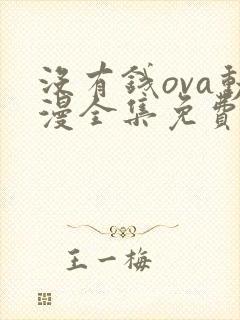 没有錢ova動
漫全集免費
王一梅